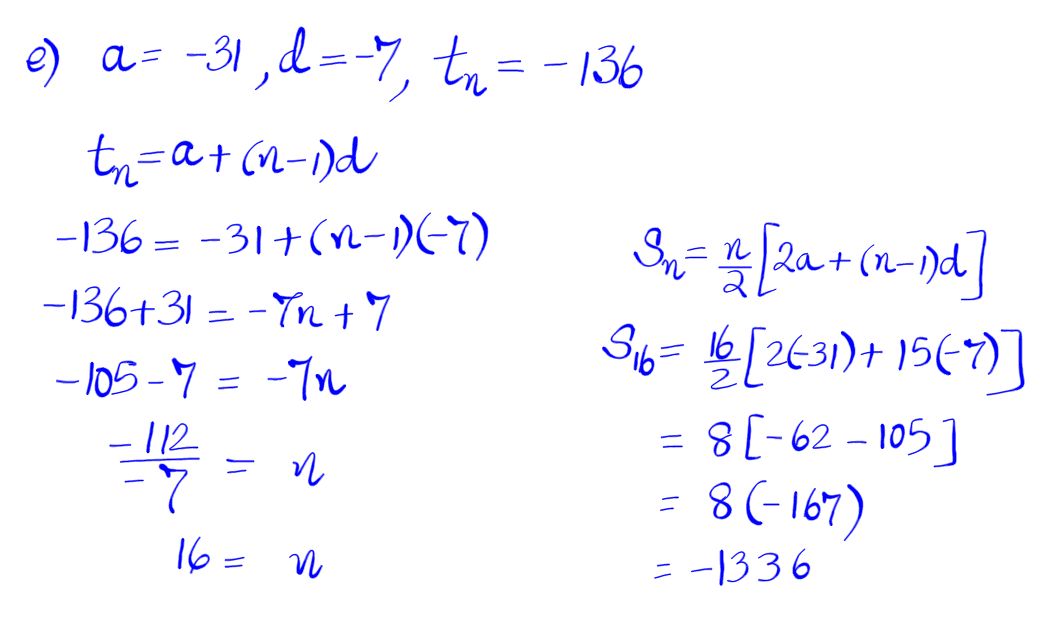 e) a = -31, d = -7, tₙ = -136
tₙ = a + (n-1)d
-136 = -31 + (n-1)(-7)
-136 + 31 = -7n + 7
-105 - 7 = -7n
-112/-7 = n
16 = n
Sₙ = n/2 [2a + (n-1)d]
S₁₆ = 16/2 [2(-31) + 15(-7)]
= 8[-62 - 105]
= 8(-167)
= -1336